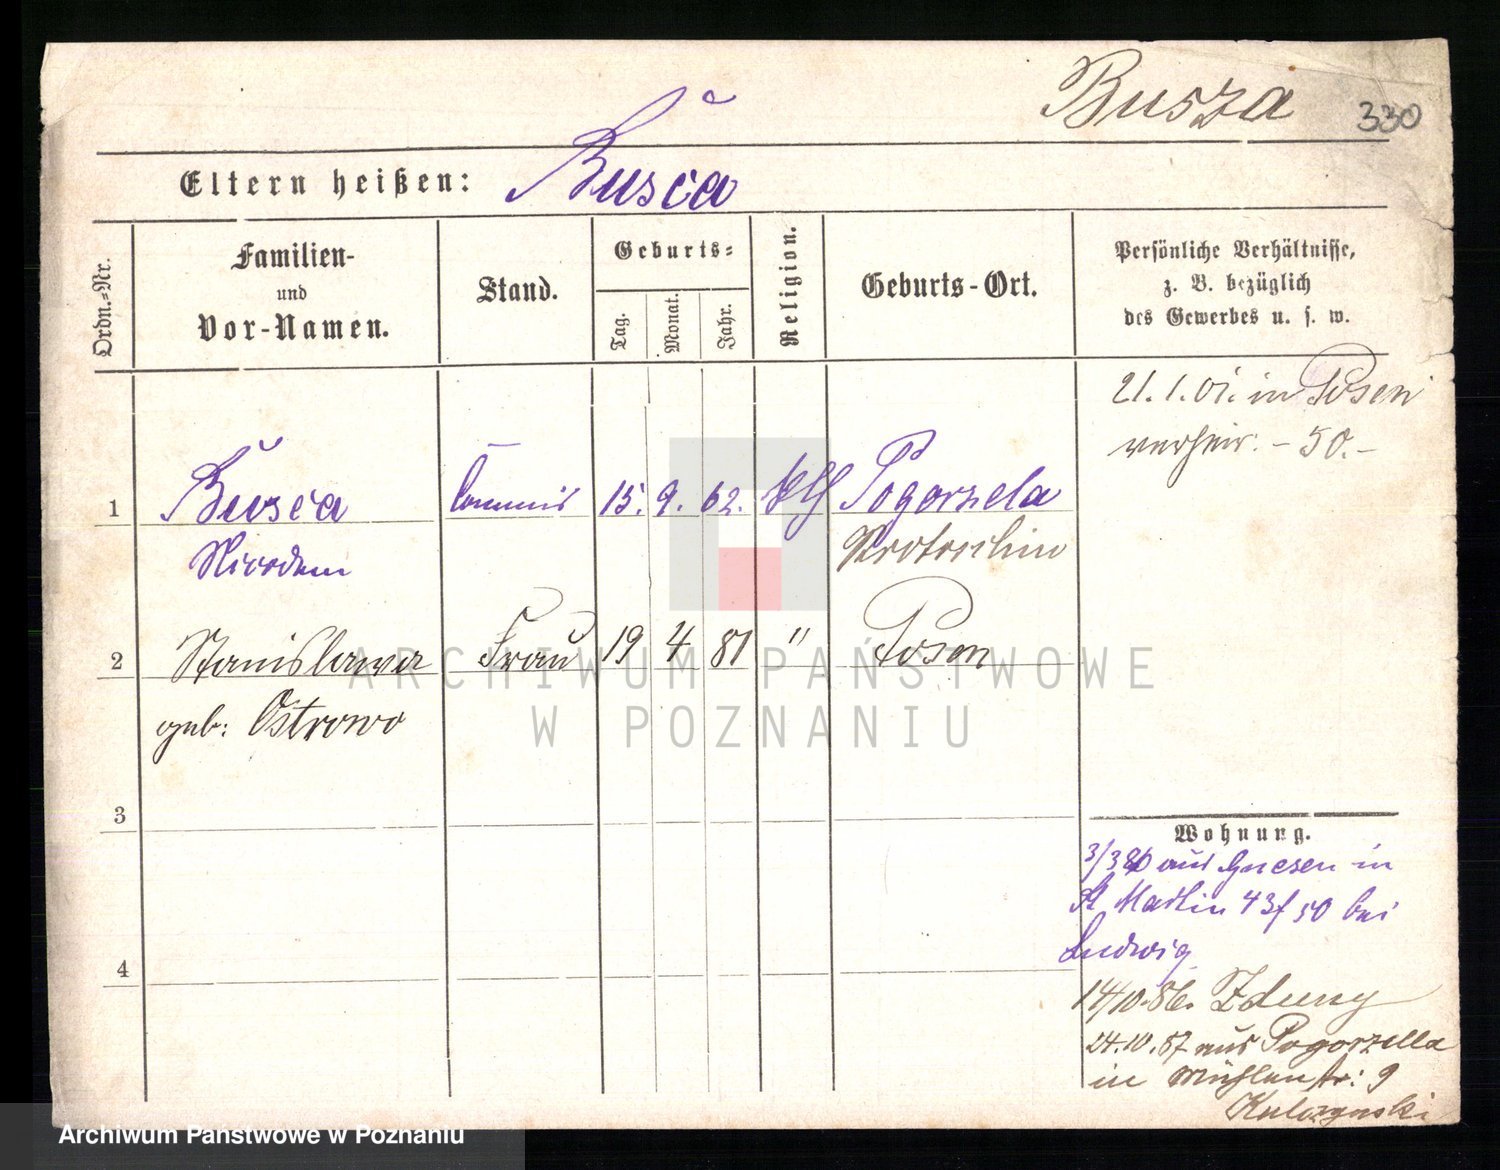 Busza 330
Eltern heißen: Busca
Ordn.-Nr.
Familien-
und
Vor-Namen.
Stand.
Geburts-
Tag.
Monat.
Jahr.
Religion.
Geburts-Ort.
Persönliche Verhältnisse,
z. B. bezüglich
des Gewerbes u. s. w.
21. 1. 01. in Posen
verheir: - 50.-
1 Busca Commis 15. 9. 62. kth Pogorzela
Nicodem Krotoschin
2 Stanislawa Frau 19 4 81 " Posen
geb: Ostrowo
3
4
Wohnung.
3/3 86 aus Gnesen in
St Martin 43/50 bei
Ludwig
14/10. 86. Zduny
24.10.87 aus Pogorzella
in Mühlenstr: 9
ARCHIWUM PAŃSTWOWE
W POZNANIU
Archiwum Państwowe w Poznaniu